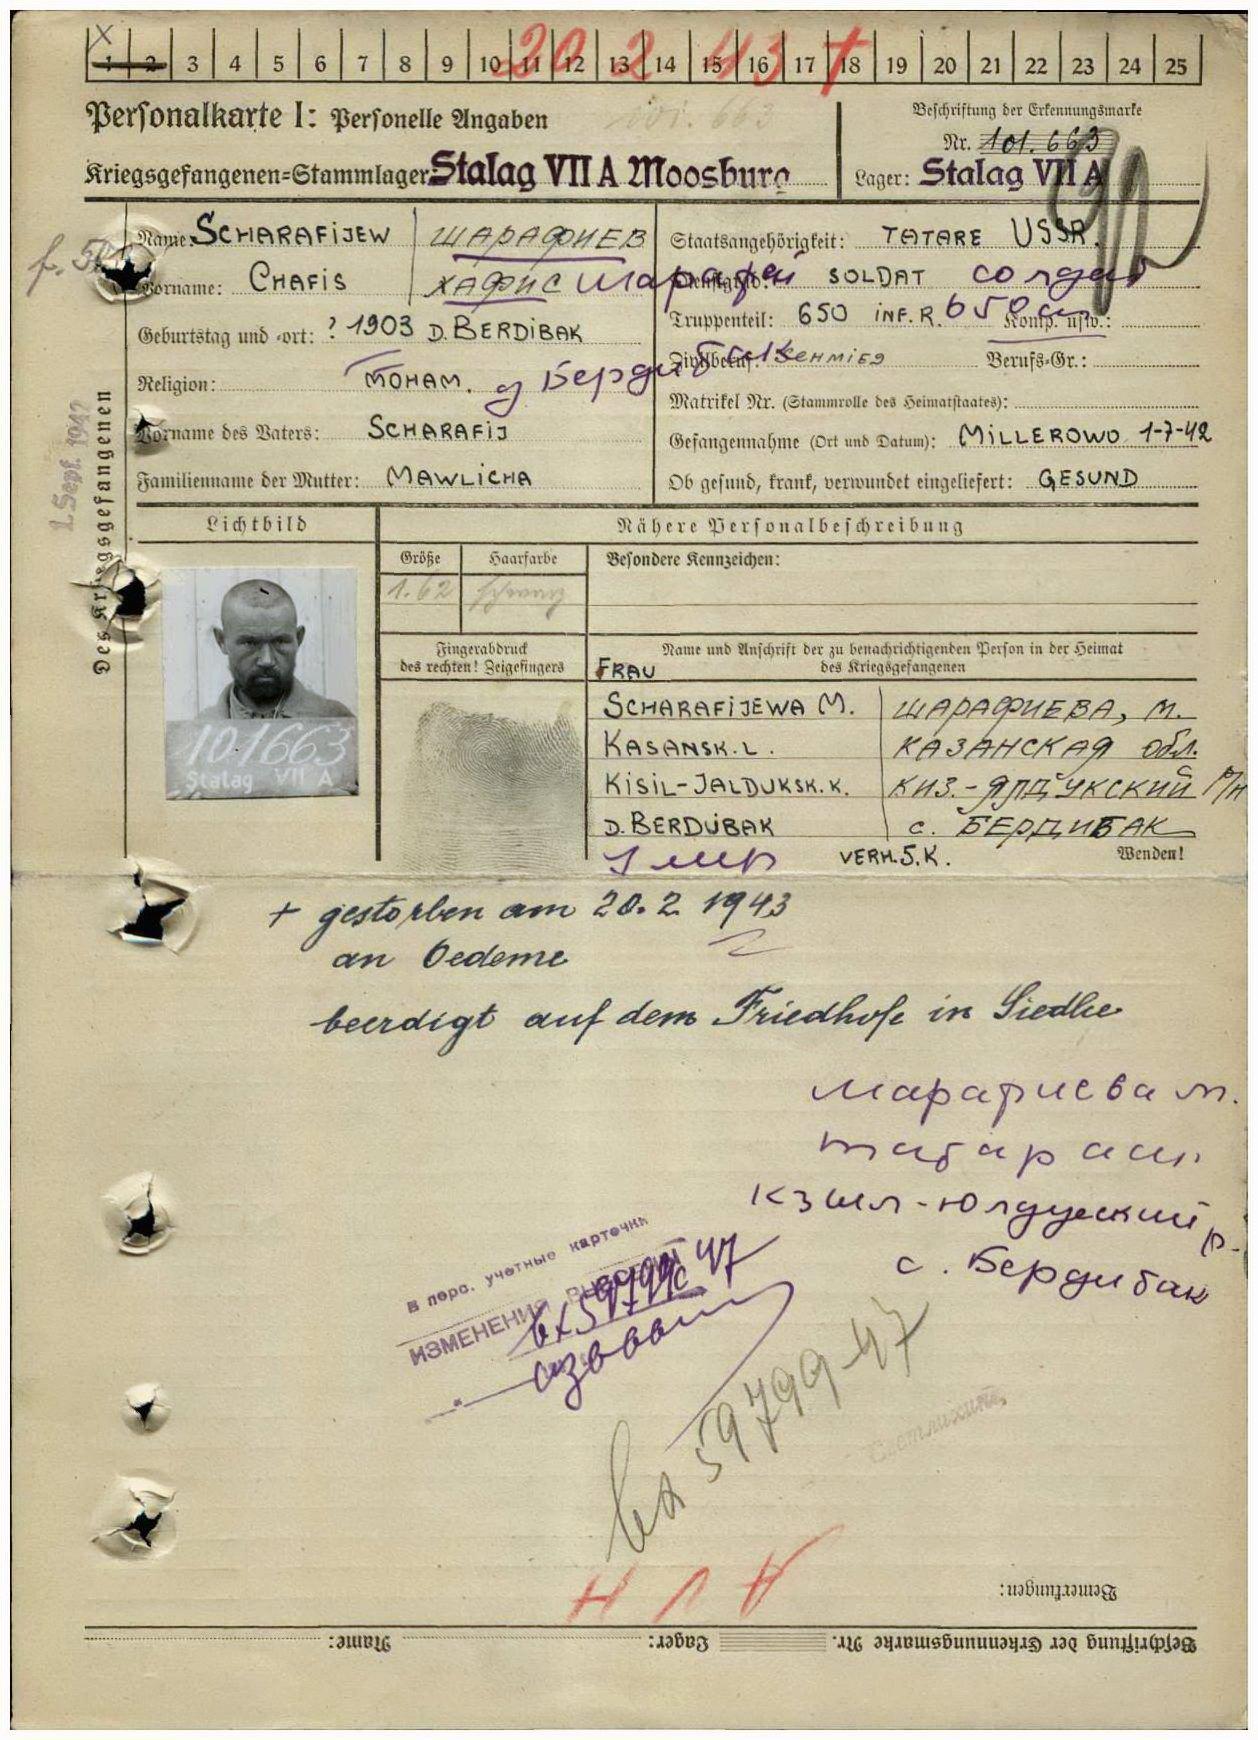 X
1 2 3 4 5 6 7 8 9 10 11 12 13 14 15 16 17 18 19 20 21 22 23 24 25
20 2 43 †
Personalkarte I: Personelle Angaben
Beschriftung der Erkennungsmarke
Nr. 101.663
Kriegsgefangenen=Stammlager: Stalag VII A Moosburg
Lager: Stalag VII A
Name: SCHARAFIJEW ШАРАФИЕВ
Staatsangehörigkeit: TATARE USSR.
Vorname: CHAFIS ХАФИС Шарафей
Dienstgrad: SOLDAT солдат
Geburtstag und =ort: ? 1903 D. BERDIBAK
Truppenteil: 650 INF. R. 650 Komp. usw.:
Zivilberuf: SCHMIED Berufs=Gr.:
Religion: MOHAM. д Бердибак
Matrikel Nr. (Stammrolle des Heimatstaates):
Vorname des Vaters: SCHARAFIJ
Gefangennahme (Ort und Datum): MILLEROWO 1-7-42
Familienname der Mutter: MAWLICHA
Ob gesund, krank, verwundet eingeliefert: GESUND
1. Sept. 1942
Des Kriegsgefangenen
Lichtbild
Nähere Personalbeschreibung
Größe Haarfarbe
Besondere Kennzeichen:
1.62 schwarz
Fingerabdruck
des rechten! Zeigefingers
Name und Anschrift der zu benachrichtigenden Person in der Heimat
des Kriegsgefangenen
FRAU
SCHARAFIJEWA M. ШАРАФИЕВА, М.
KASANSK. L. КАЗАНСКАЯ обл.
KISIL-JALDUKSK. K. КИЗ.-ЯЛДУКСКИЙ Р/Н
D. BERDÜBAK с. БЕРДИБАК
101663
Stalag VII A
VERH. 5. K.
Wenden!
+ gestorben am 20. 2. 1943
an Oedeme
beerdigt auf dem Friedhofe in Siedlce
Шарафиева м.
татарин
Кзыл-Юлдузский р-
с. Бердибак
В перс. учетные карточки
ИЗМЕНЕНИЯ ВНЕСЕНЫ
вх 59799с 47
вх 59799-47
Bemerkungen:
Beschriftung der Erkennungsmarke Nr. Lager: Name: